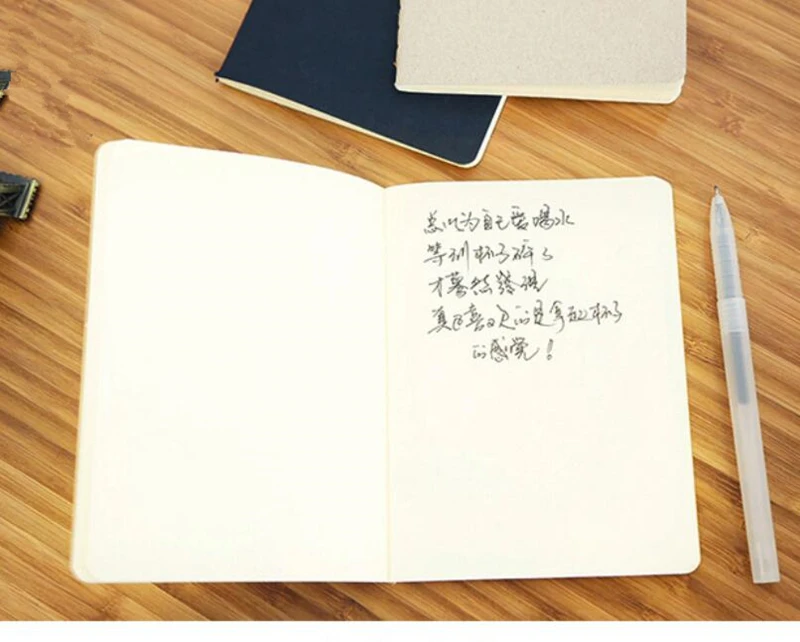 总以为自己爱喝水
等到杯子碎了
才蓦然发现
真正喜欢的是拿起杯子
的感觉！